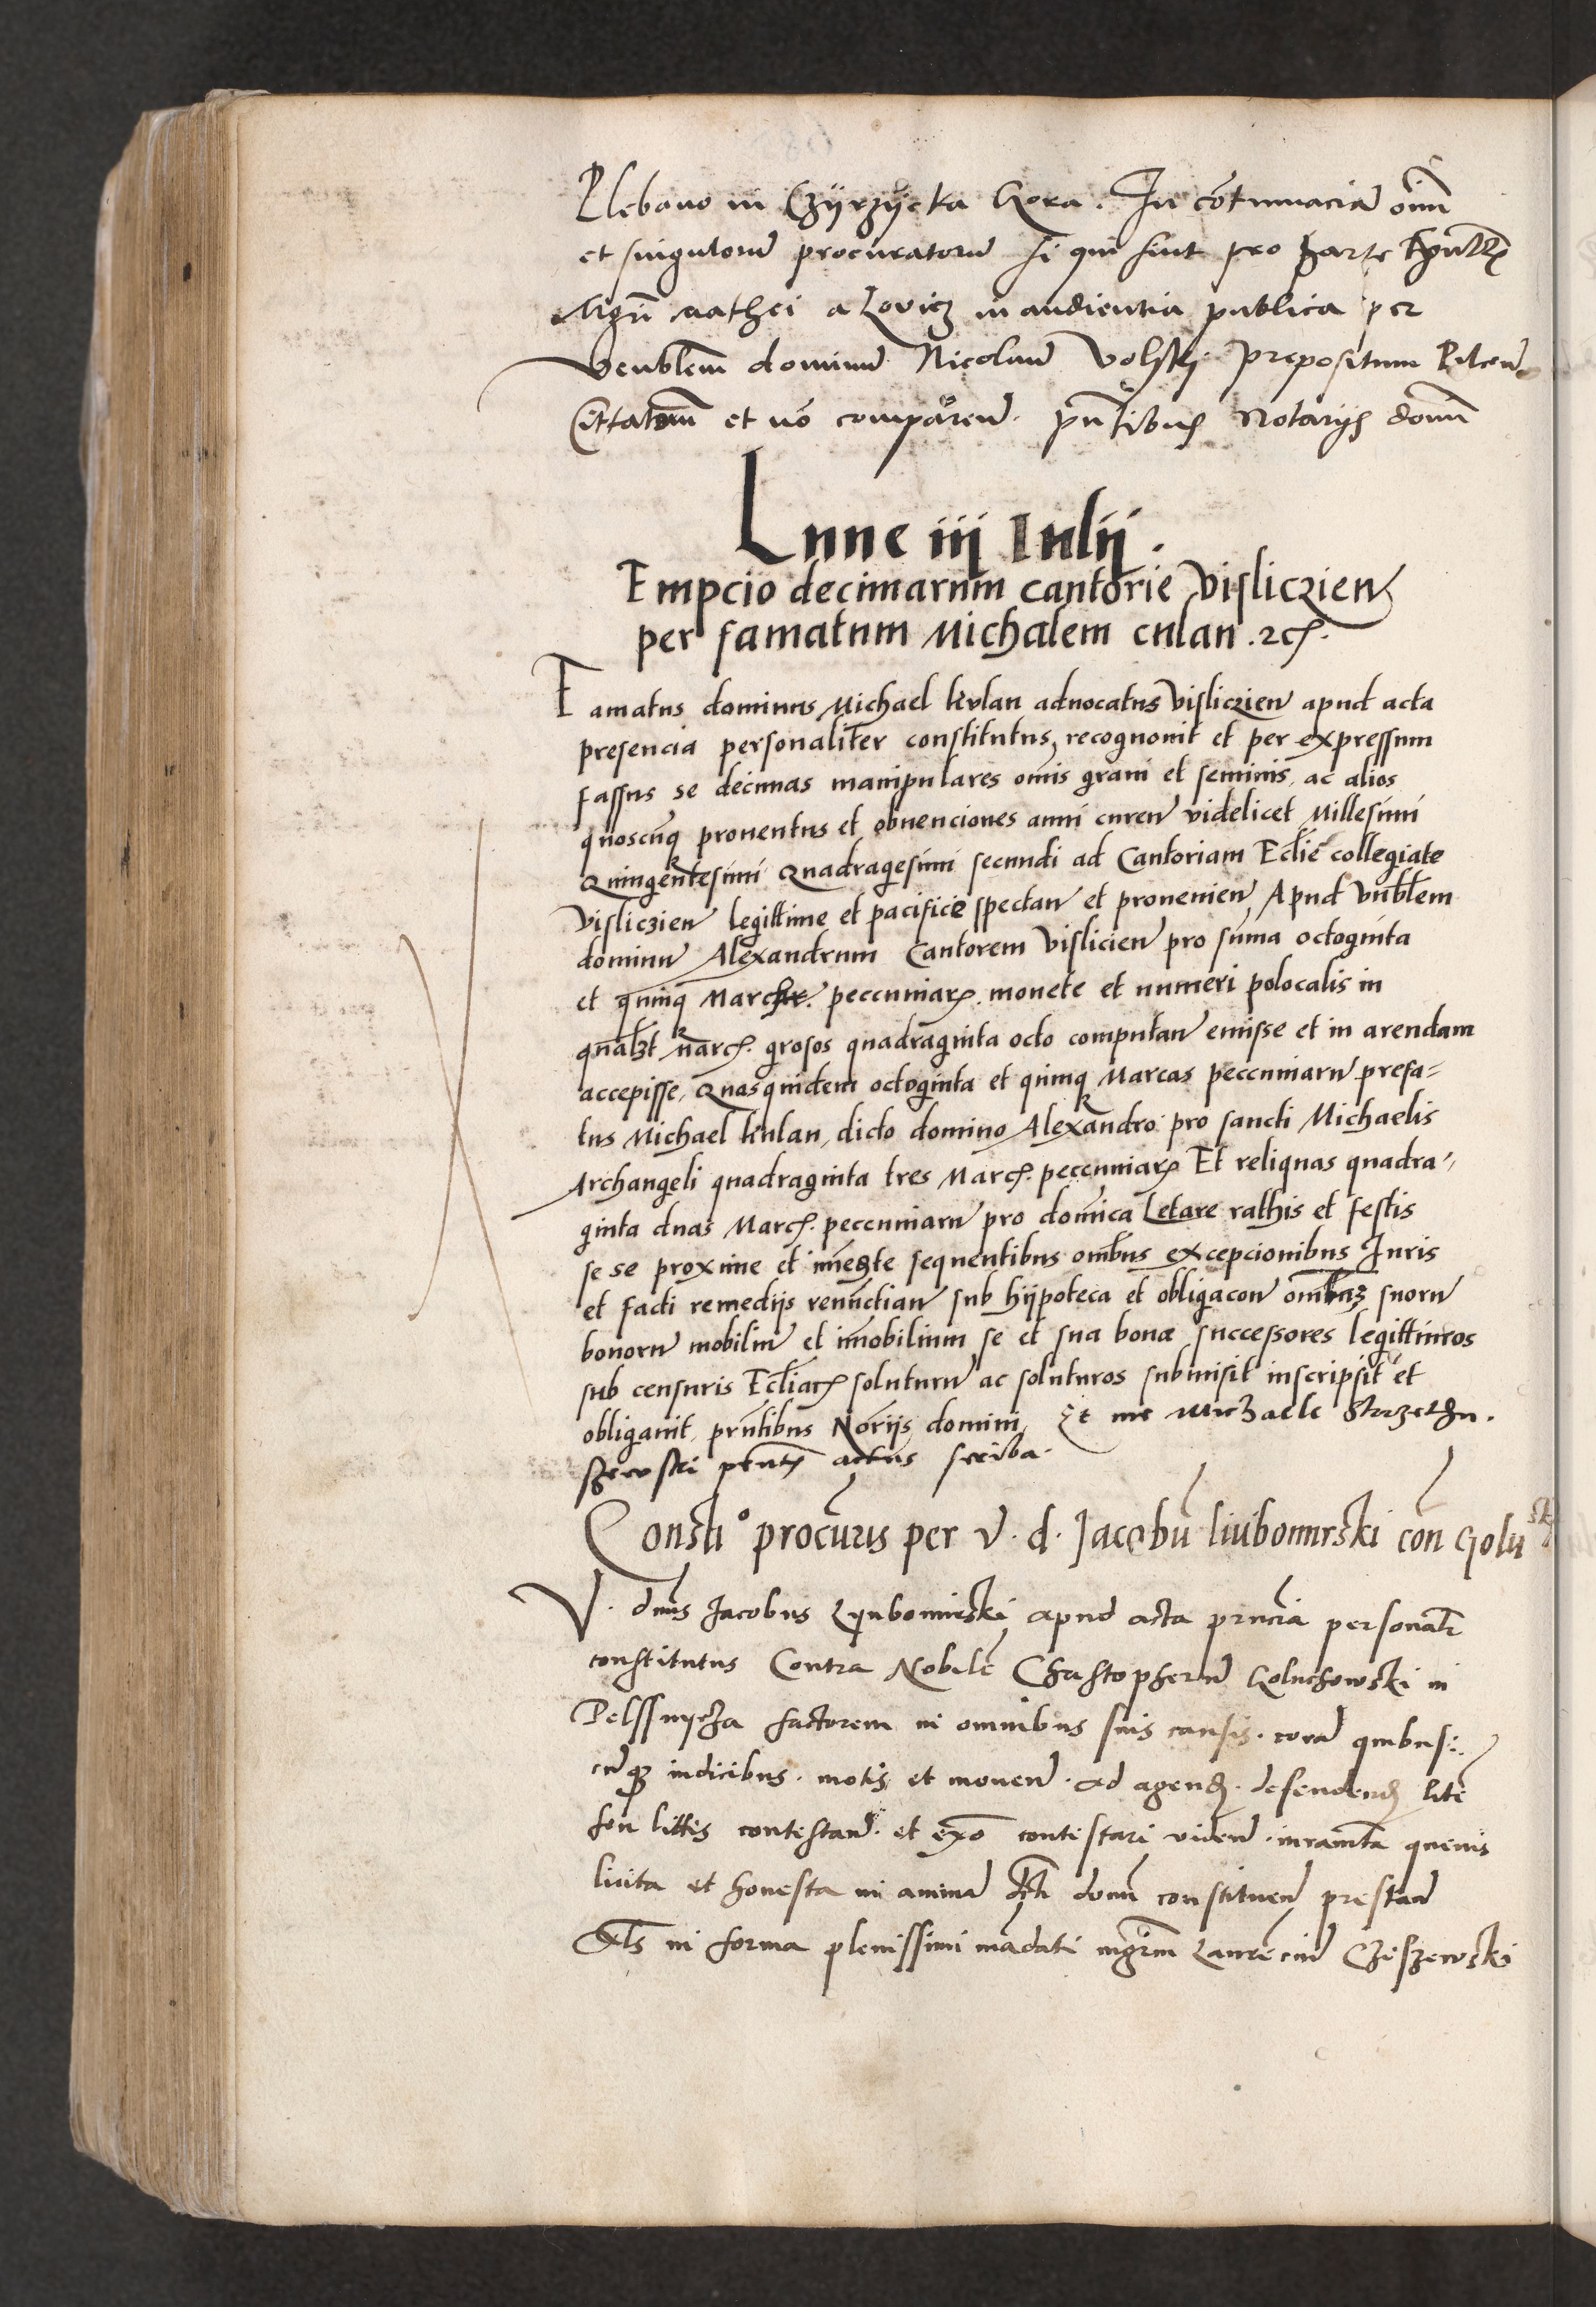 Plebano in Czyrzycka Gora. In cōtumaciā oīm
et singulorū procuratorū si qui sint pro parte
Mgrī Mathei a Lovicz in audientia publica per
Venblem dominū Nicolaum Volski prepositum Pilcen
Cittatorum et nō comparen. pn̄tibus Notarijs domī
Lune iij Iulij.
Empcio decimarum cantorie Visliczien
per famatum Michalem culan. etc.
Famatus dominus Michael kulan aduocatus Visliczien apud acta
presencia personaliter constitutus, recognouit et per expressum
fassus se decimas manipulares om̄is grani et seminis, ac alios
quoscūq prouentus et obuenciones anni curen videlicet Millesimi
Quingentesimi Quadragesimi secundi ad Cantoriam Ecclie collegiate
Visliczien legittime et pacifice spectan et prouenien Apud Vnblem
dominū Alexandrum Cantorem Vislicien pro sūma octoginta
et quinq March. peccuniarꝝ monete et numeri polocalis in
qualꝫt March. grosos quadraginta octo computan emisse et in arendam
accepisse, Quasquidem octoginta et quinq Marcas peccuniarū prefa=
tus Michael kulan, dicto domino Alexandro pro sancti Michaelis
Archangeli quadraginta tres March. peccuniarꝝ Et reliquas quadra=
ginta duas March. peccuniarū pro domīca Letare rathis et festis
se se proxime et īmeāte sequentibus om̄bus excepcionibus Iuris
et facti remedijs renūctian sub hijpoteca et obligacon om̄buꝫ suorū
bonorū mobiliū et īmobilium se et sua bona successores legittimos
sub censuris Eccliarꝝ soluturū ac soluturos submisit inscripsit et
obligauit, prn̄tibus Norijs domini, Et me Michaele
actus scriba.
Consti° procūris per V. d. Jacobū liubomirski con Golu sk
V. dn̄s Jacobus Lyubomirski apud acta prn̄cia personalr
constitutus Contra Nobilē Christopherū Goluchowski in
Pelssnycza factorem in omnibus suis causis. corā quibus:
cūqꝫ iudicibus. motis et mouen. ad agend. defendend litē
seu littes contestand. et exo contestari viden. iuramta queuis
licita et honesta in animā dcti domī constituen prestand
Als in forma plenissimi mādati mgrm Laurēciū Czeszewski